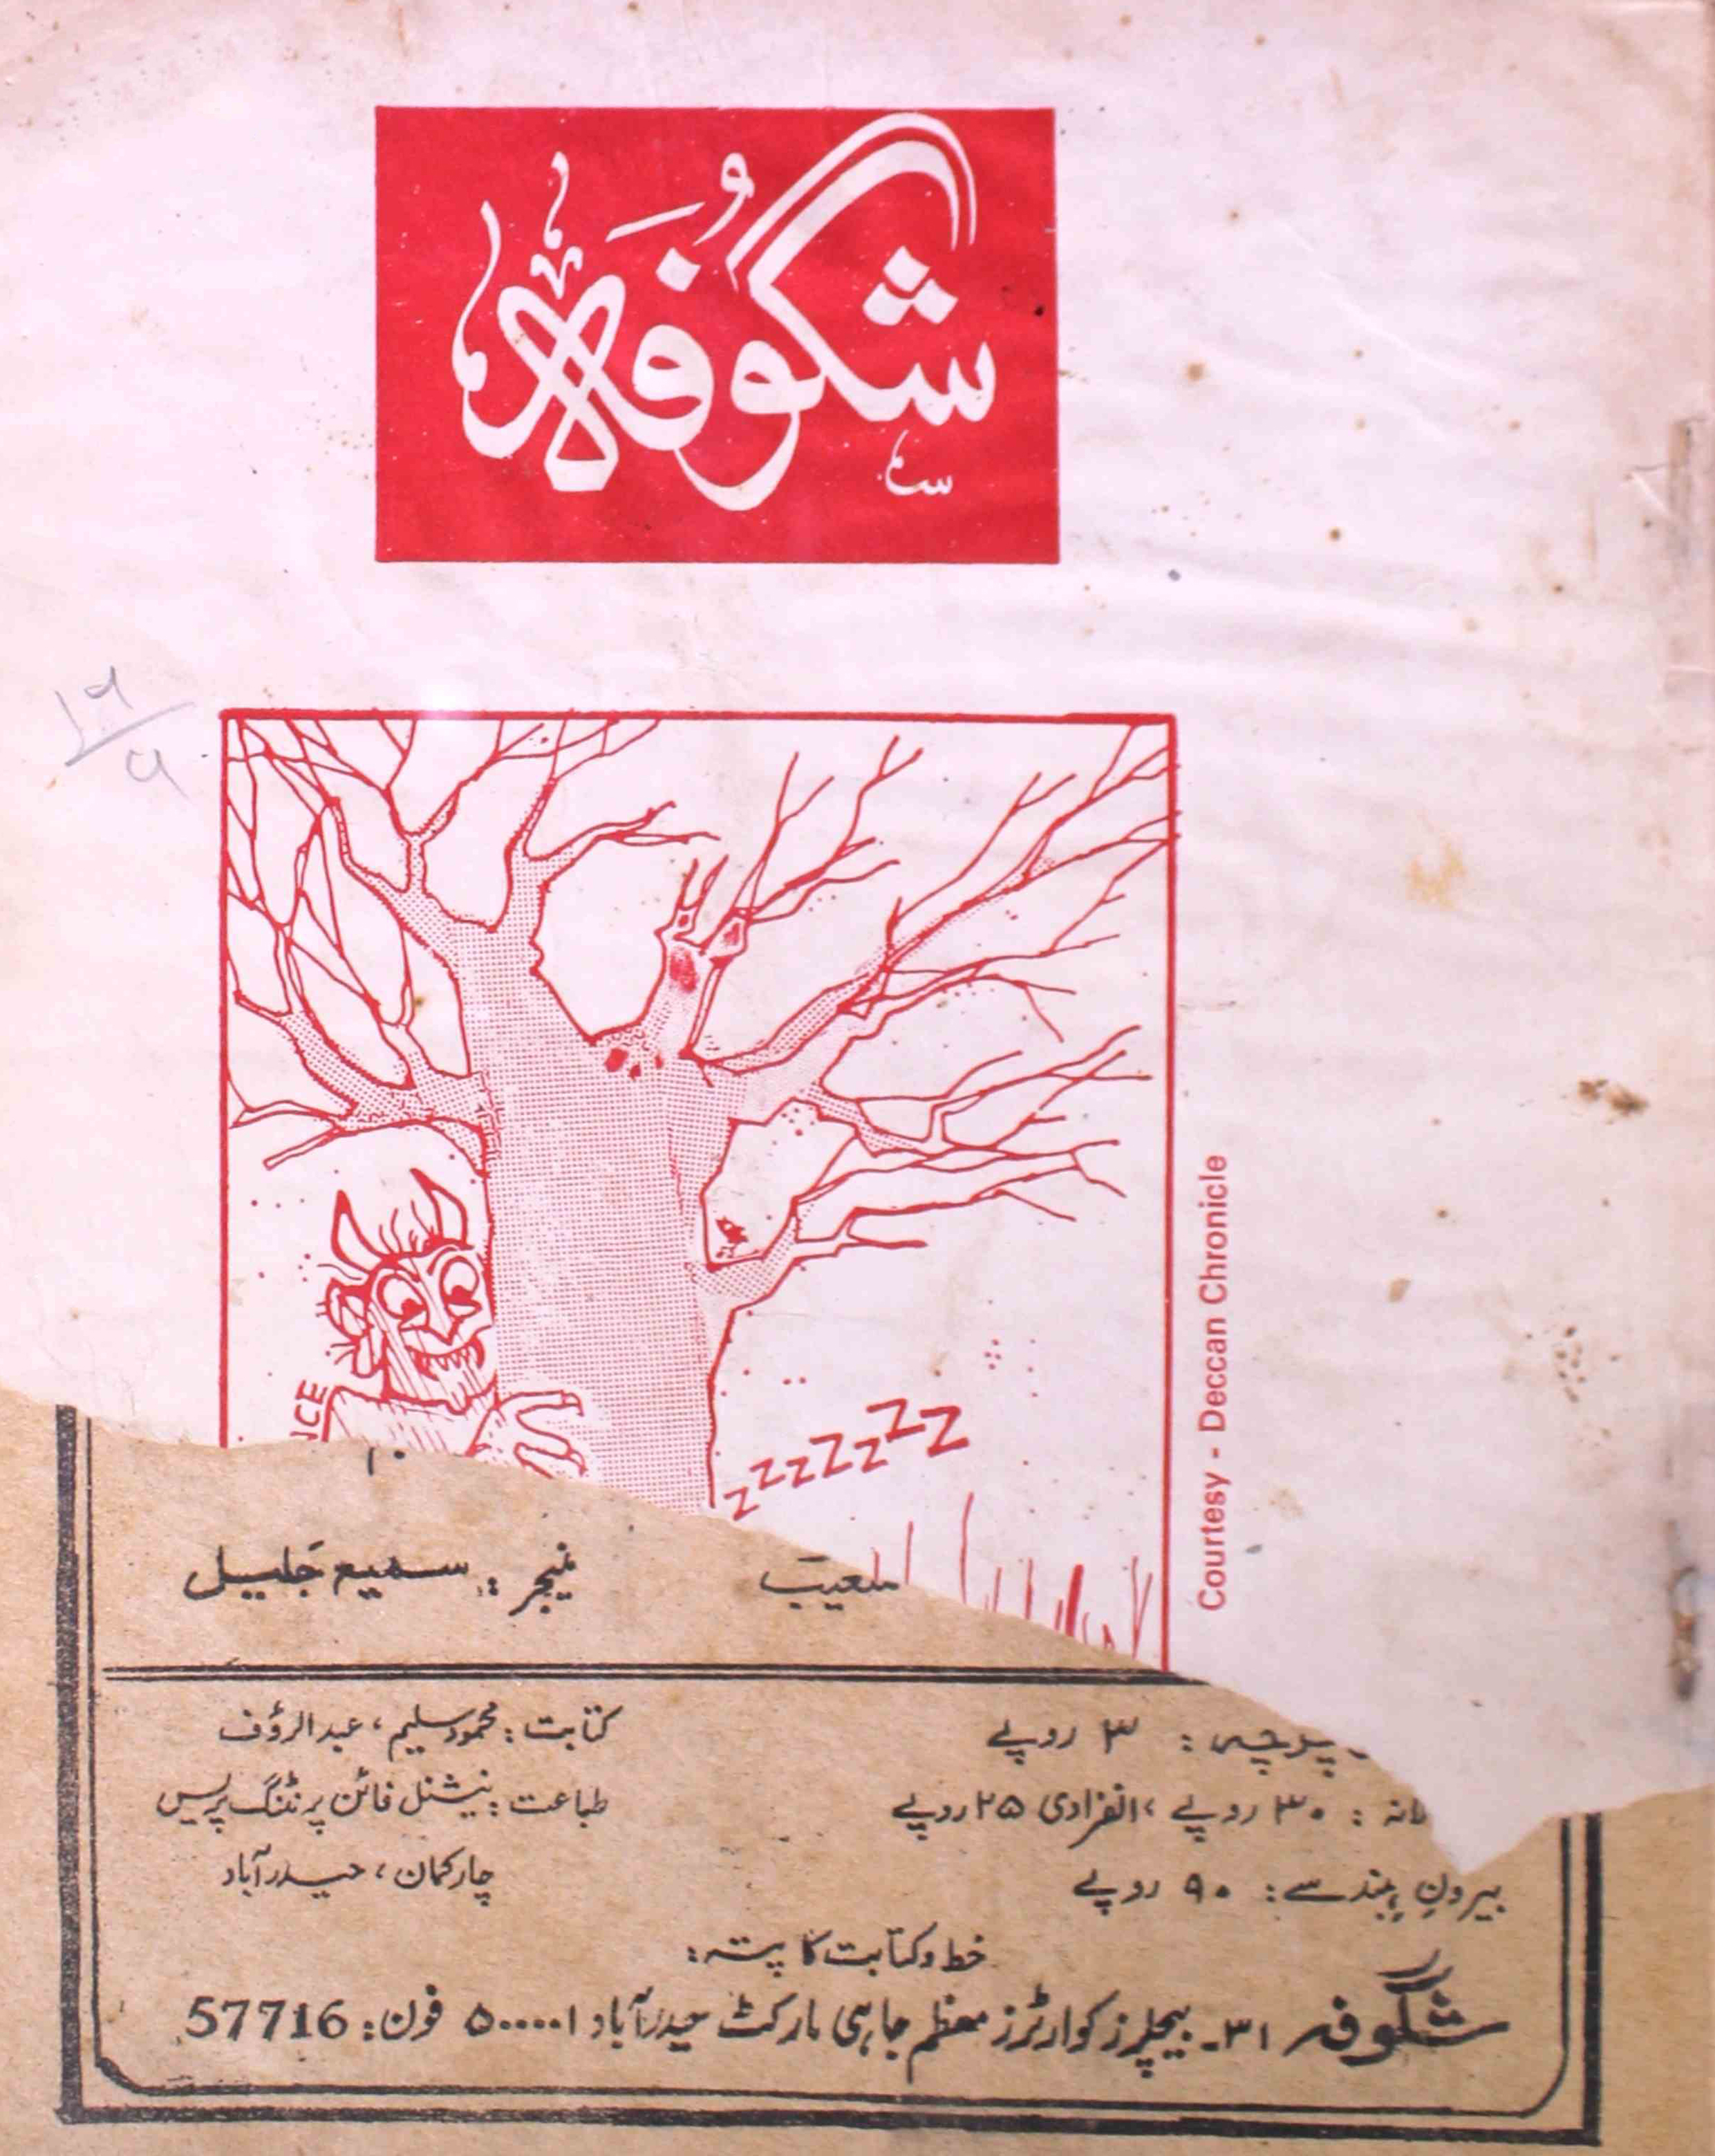 شگوفہ
Courtesy - Deccan Chronicle
zzzzzzz
منیجر: سمیع جلیل
پرچہ: ۳ روپے
لانہ: ۳۰ روپے، انفرادی ۲۵ روپے
بیرونِ ہند سے: ۹۰ روپے
کتابت: محمود سلیم، عبدالرؤف
طباعت: نیشنل فائن پرنٹنگ پریس
چارکمان، حیدرآباد
خط و کتابت کا پتہ:
شگوفہ ۳۱۔ بیچلرز کوارٹرز معظم جاہی مارکٹ حیدرآباد ۵۰۰۰۰۱ فون: 57716